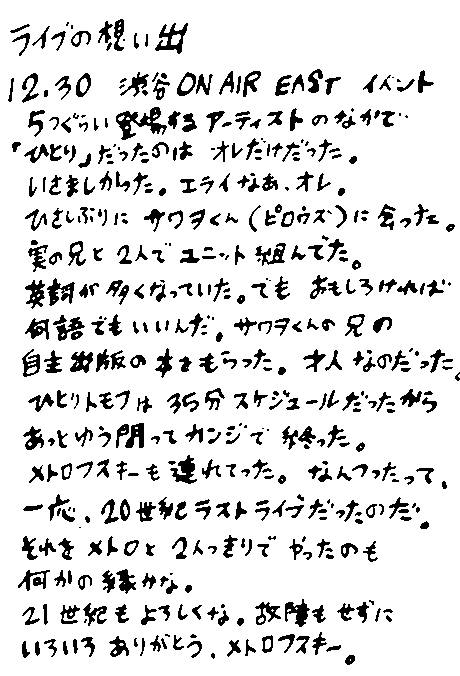 ライブの想い出
12.30 渋谷 ON AIR EAST イベント
5つぐらい登場するアーティストのなかで
「ひとり」だったのは オレだけだった。
いさましかった。エライなあ、オレ。
ひさしぶりに サワヲくん(ピロウズ)に会った。
実の兄と 2人で ユニット組んでた。
英詞が 多くなっていた。でも おもしろければ
何語でもいいんだ。サワヲくんの兄の
自主出版の本をもらった。才人なのだった。
ひとりトモフは 35分 スケジュールだったから
あっとゆう間ってカンジで 終った。
メトロフスキーも 連れてった。なんつったって、
一応、20世紀ラストライブだったのだ。
それを メトロと 2人っきりで やったのも
何かの縁かな。
21世紀も よろしくな。故障も せずに
いろいろ ありがとう、メトロフスキー。